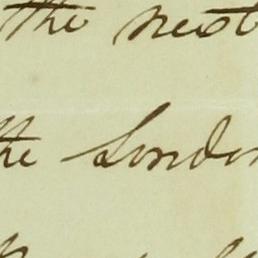 the next
the London